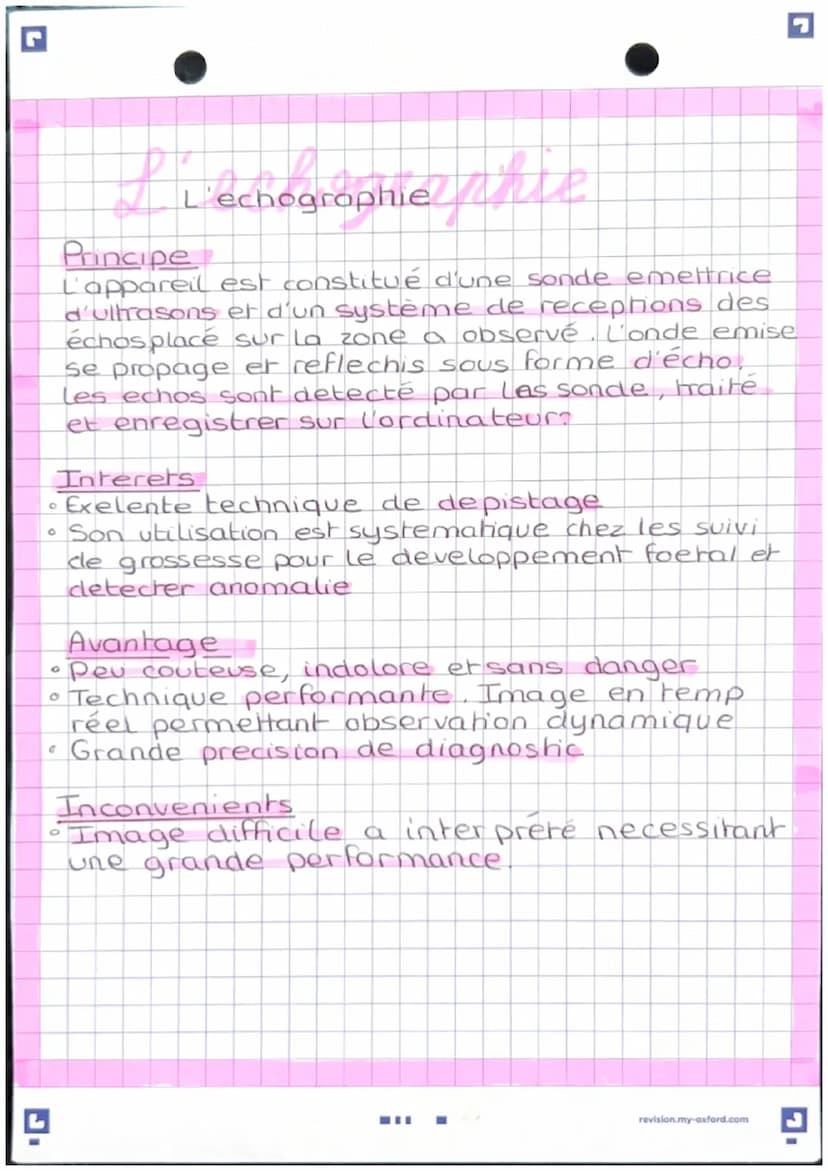 L'echographie
L'echographie
Principe
L'appareil est constitué d'une sonde emettrice
d'ultrasons et d'un système de receptions des
échos placé sur la zone a observé. L'onde emise
se propage et reflechis sous forme d'écho.
Les echos sont detecté par les sonde, traité
et enregistrer sur l'ordinateur.
Interets
• Exelente technique de depistage
• Son utilisation est systematique chez les suivi
de grossesse pour le developpement foetal et
detecter anomalie
Avantage
• Peu couteuse, indolore et sans danger
• Technique performante. Image en temp
réel permettant observation dynamique
• Grande precision de diagnostic
Inconvenients
• Image difficile a interprété necessitant
une grande performance.
revision.my-oxford.com